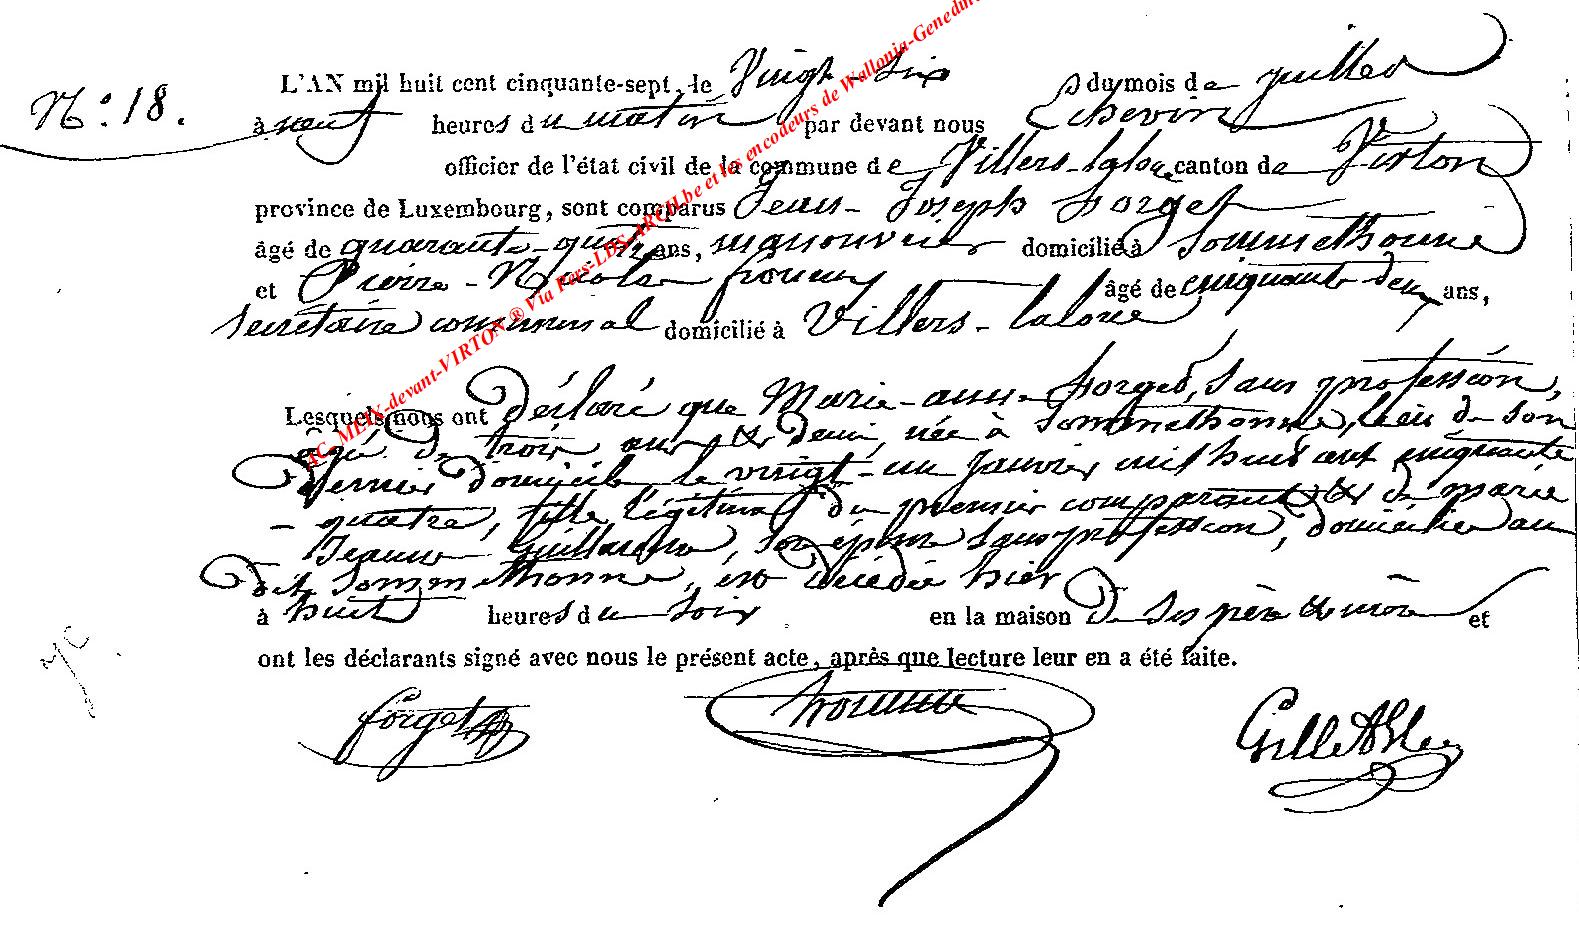 N.º 18.
L'AN mil huit cent cinquante-sept, le Vingt-Six du mois de juillet
à neuf heures du matin par devant nous Echevin
officier de l'état civil de la commune de Villers-laloue canton de Virton
province de Luxembourg, sont comparus Jean-Joseph Forget
âgé de quarante-quatre ans, manouvrier domicilié à Sommethonne
et Pierre-Nicolas âgé de cinquante deux ans,
Secrétaire communal domicilié à Villers-laloue
Lesquels nous ont déclaré que Marie-anne Forget, sans profession,
âgée de trois ans & demi, née à Sommethonne, lieu de son
dernier domicile le vingt-un janvier mil huit cent cinquante
-quatre, fille légitime du premier comparant & de marie
Jeanne Guillaume, son épouse sans profession, domiciliée au
dit Sommethonne, est décédée hier
à huit heures du soir en la maison de ses père & mère et
ont les déclarants signé avec nous le présent acte, après que lecture leur en a été faite.
forget
AC_MEIX-devant-VIRTON ® Via Pers-LDS-ARCH.be et les encodeurs de Wallonia-Genedinter